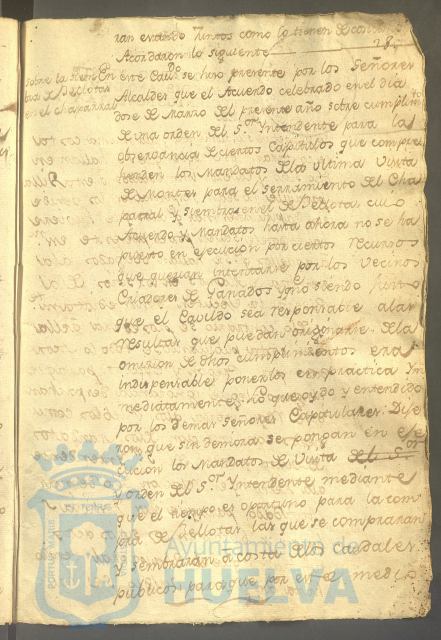 ran estando juntos como lo tienen de costu
Acordaron lo siguiente
28
sobre la siem
bra de Vellotas
en el chaparral
En este Cavdo se hizo presente por los Señores
Alcaldes que el Acuerdo celebrado en el dia
dose de Marzo del presente año sobre cumplimto
de una orden del Sor Yntendente para la
observancia de ciertos Capitulos que compre
henden los Mandatos de la ultima Visita
de Montes para el serramiento del Cha
parral y siembra en el de Vellota cuio
Acuerdo y Mandatos hasta ahora no se ha
puesto en ejecucion por ciertos recursos
que querian intentarse por los Vecinos
Criadores de Ganados y no siendo justo
que el Cavildo sea responsable a las
resultas que puedan originarse de la
omision de dhos cumplimientos era
indispensable ponerlos en practica Yn
mediatamente, lo que oydo y entendido
por los demas Señores Capitulares Dije
ron que sin demora se pongan en eje
cucion los Mandatos de Visita del Sor
y orden del Sor Yntendente mediante
que el tiempo es oportuno para la com
pra de Vellotas las que se compraran
y sembraran a costa de los caudales
publicos para que por este medio
Ayuntamiento de
HUELVA